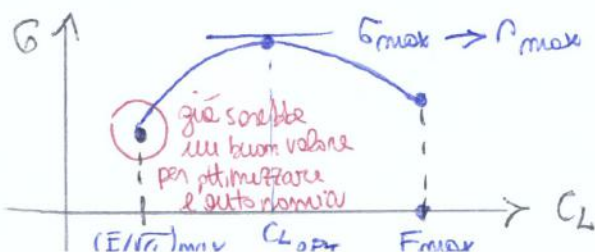 G
Gmax → rmax
già sarebbe
un buon valore
per ottimizzare
l'autonomia
CL
(E/√CL)max CL OPT Emax